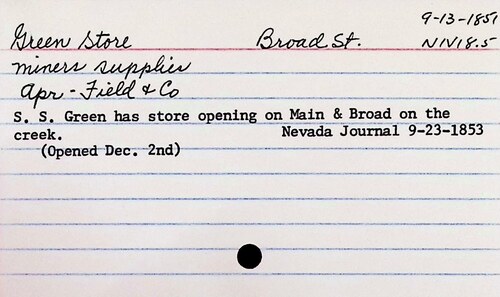 9-13-1851
Green Store Broad St. N1V18.5
miners supplies
Apr - Field & Co
S. S. Green has store opening on Main & Broad on the
creek. Nevada Journal 9-23-1853
(Opened Dec. 2nd)